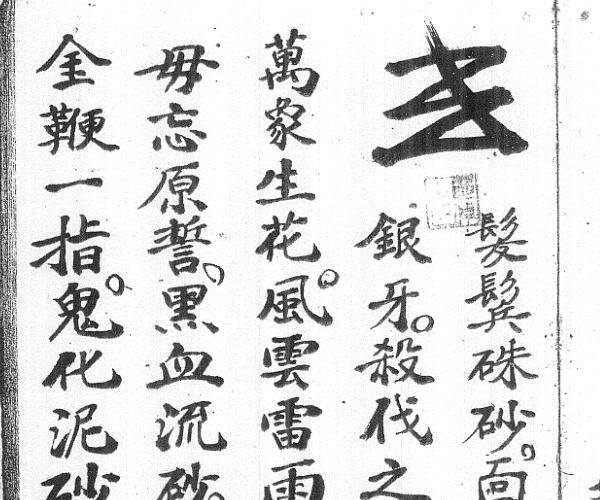 髮鬓硃砂。面
銀牙。殺伐之
萬象生花。風雲雷雨
毋忘原誓。黑血流砂。
金鞭一指。鬼化泥砂